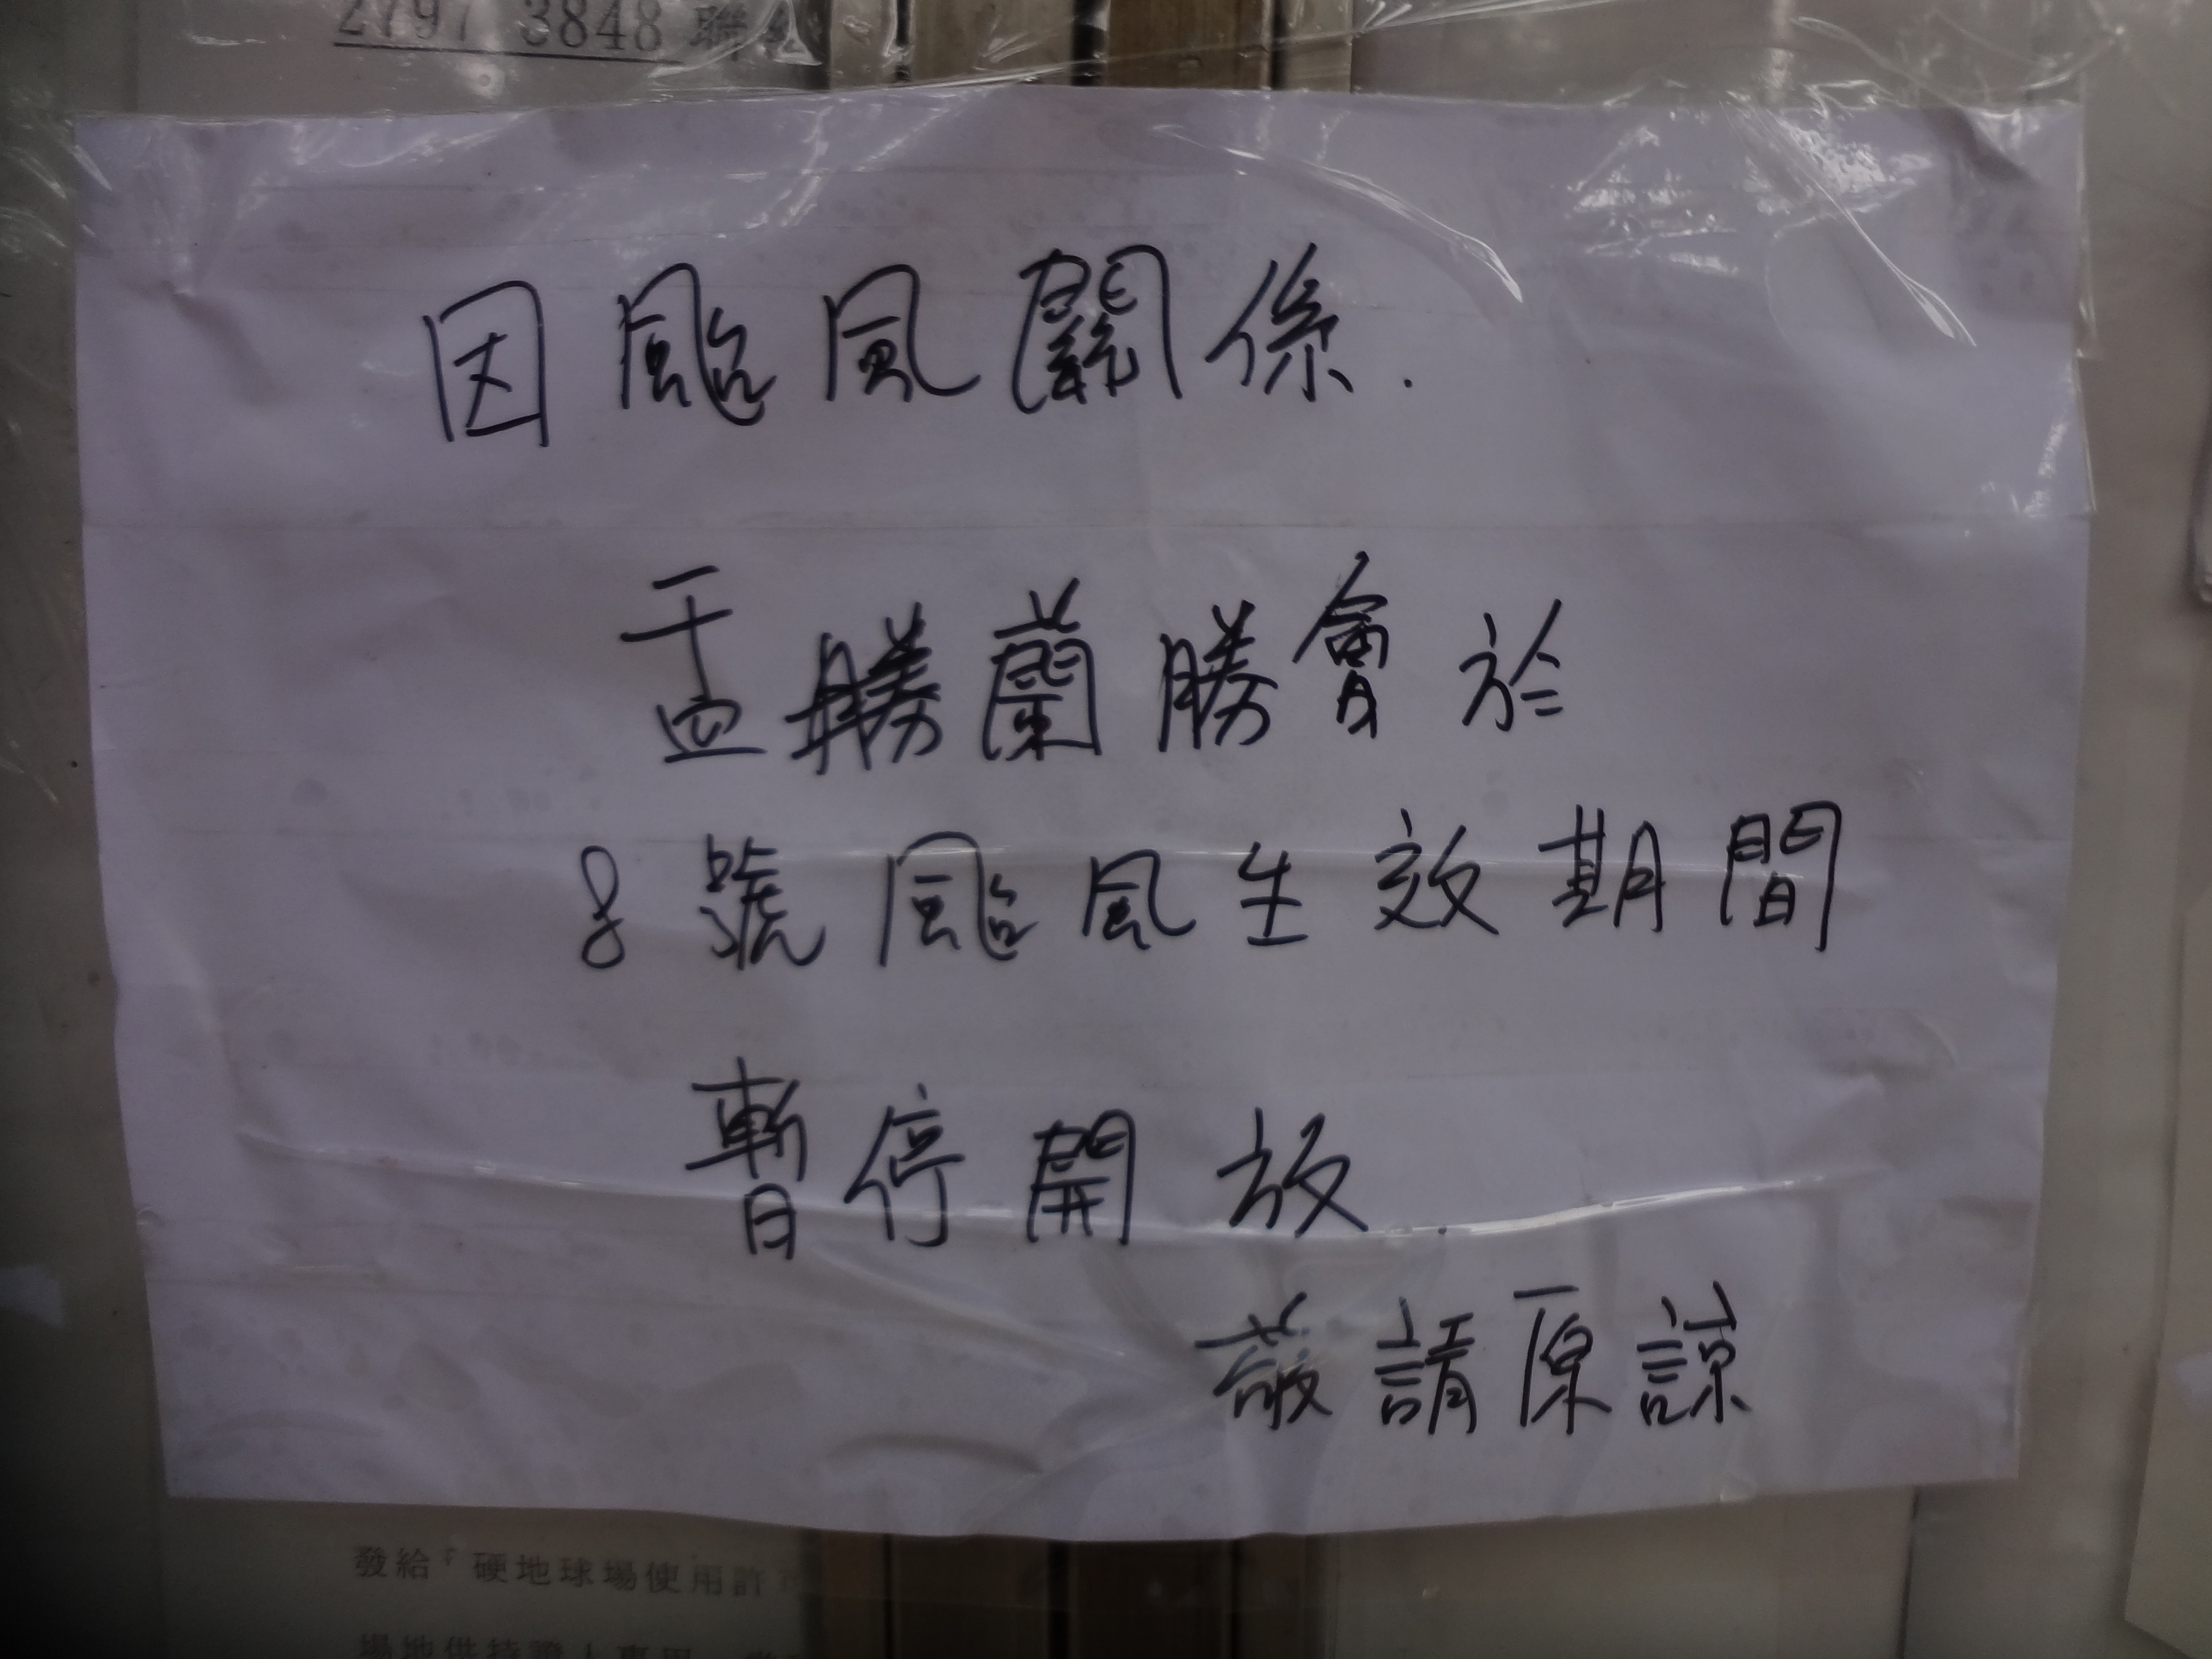 2797 3848 聯絡
因颱風關係.
盂蘭勝會於
8號颱風生效期間
暫停開放.
敬請原諒
發給「硬地球場使用許